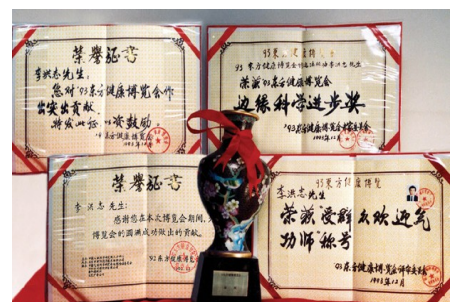 荣誉证书
李洪志先生：
您对'93东方健康博览会作
出突出贡献
特发此证，以资鼓励。
'93东方健康博览会
1993年12月
李洪志先生
荣获'93东方健康博览会
边缘科学进步奖
'93东方健康博览会评审委员会
1993年12月
荣誉证书
李洪志先生：
感谢您在本次博览会期间，
博览会的圆满成功做出的贡献。
93东方健康博览
李洪志先生
荣获"受群众欢迎气
功师"称号
'93东方健康博览会评审委员会
1993年12月